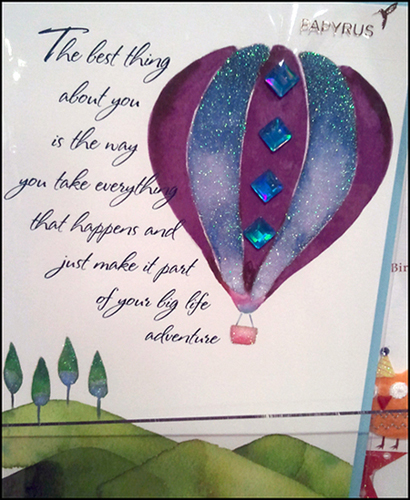 PAPYRUS
The best thing
about you
is the way
you take everything
that happens and
just make it part
of your big life
adventure
Bir